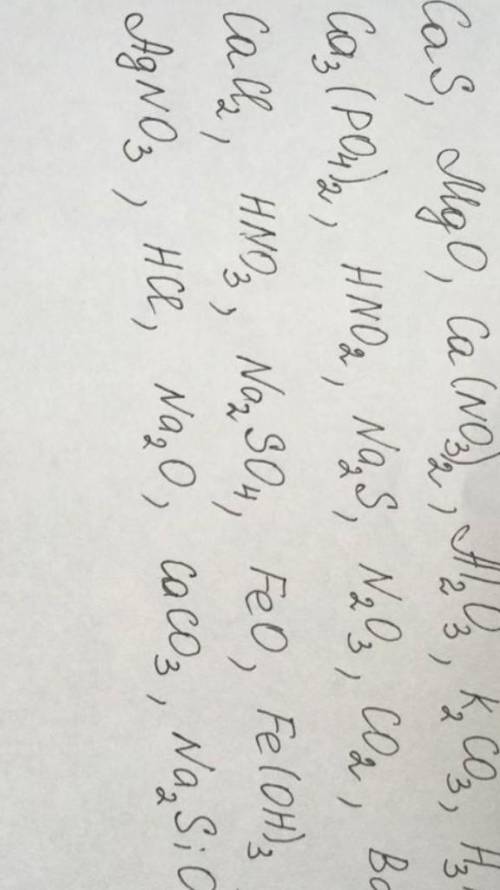 CaS, MgO, Ca(NO₃)₂, Al₂O₃, K₂CO₃,
Ca₃(PO₄)₂, HNO₂, Na₂S, N₂O₃, CO₂,
CaCl₂, HNO₃, Na₂SO₄, FeO, Fe(OH)₃
AgNO₃, HCl, Na₂O, CaCO₃,